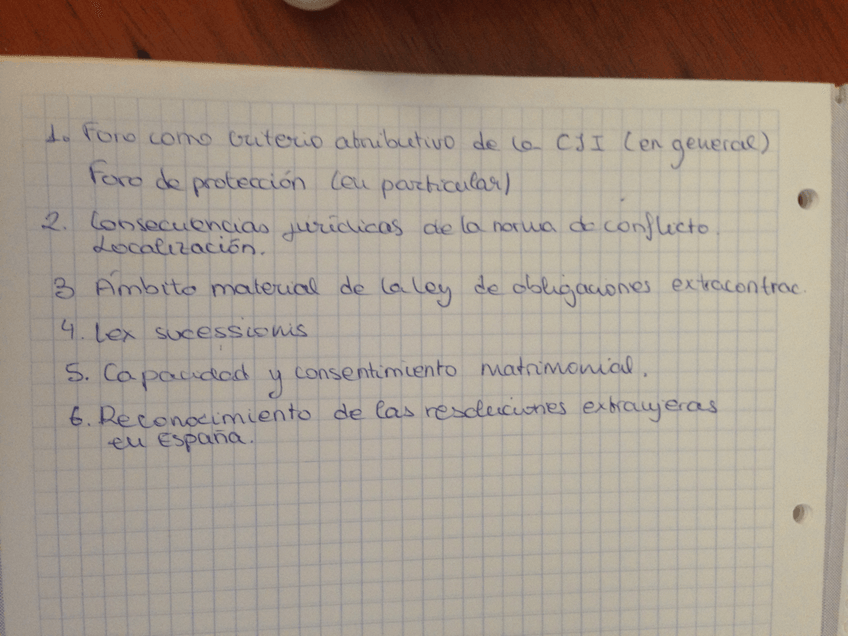 1. Foro como criterio atributivo de la CJI (en general)
Foro de protección (en particular)
2. Consecuencias jurídicas de la norma de conflicto.
Localización.
3 Ámbito material de la ley de obligaciones extracontrac.
4. Lex sucessionis
5. Capacidad y consentimiento matrimonial.
6. Reconocimiento de las resoluciones extranjeras
en España.